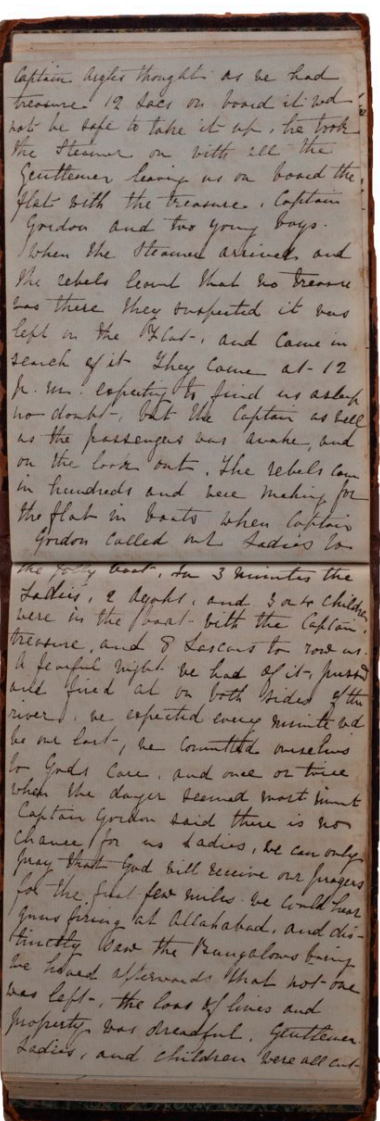 Captain thought as we had
treasure 12 Lacs on board it wd
not be safe to take it up, he took
the Steamer on with all the
Gentlemen leaving us on board the
flat with the treasure, Captain
Gordon and two young boys.
When the Steamer arrived and
the rebels learnt that no treasure
was there they suspected it was
left in the Flat, and came in
search of it They came at 12
p.m. expecting to find us asleep
no doubt, but the Captain as well
as the passengers was awake, and
on the look out. The rebels came
in hundreds and were making for
the flat in boats when Captain
Gordon called out Ladies to
the jolly boat. In 3 minutes the
Ladies, 2 Ayahs, and 3 or 4 children
were in the boat with the Captain,
treasure, and 8 Lascars to row us.
A fearful night we had of it, pursued
and fired at on both sides of the
river, we expected every minute wd
be our last, we committed ourselves
to Gods care, and once or twice
when the danger seemed most
Captain Gordon said there is no
chance for us Ladies, we can only
pray that God will receive our prayers
for the first few miles we could hear
guns firing at Allahabad, and dis-
tinctly saw the Bungalows burning
we heard afterwards that not one
was left, the loss of lives and
property was dreadful. Gentlemen
Ladies, and children were all cut